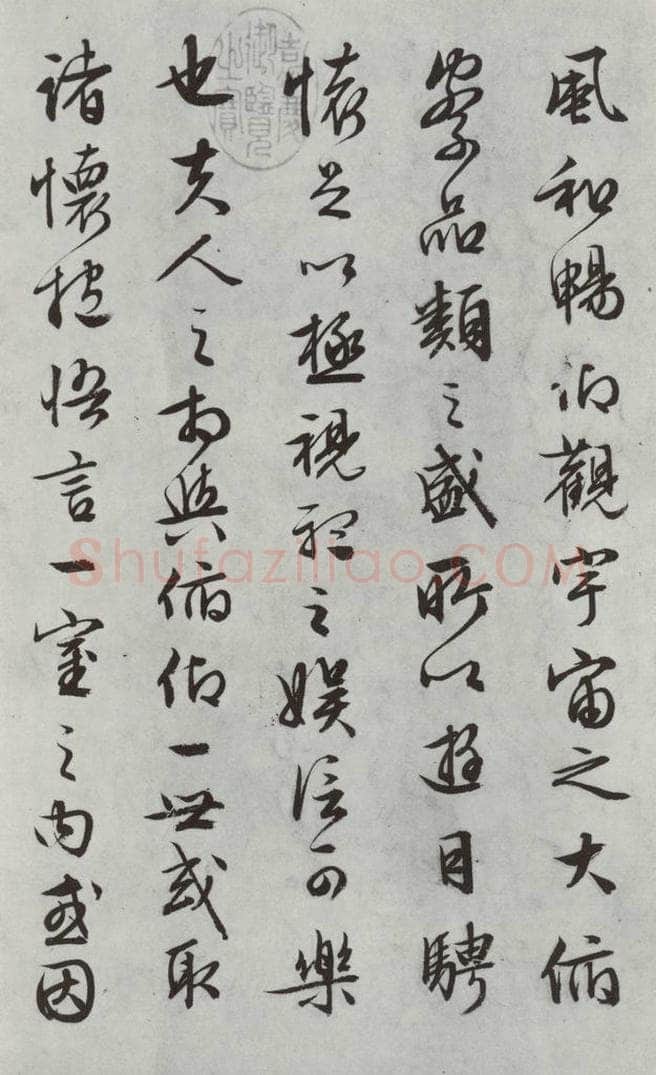 風和暢仰觀宇宙之大俯
察品類之盛所以遊目騁
懷足以極視聽之娛信可樂
也夫人之相與俯仰一世或取
諸懷抱悟言一室之內或因
嘉慶御覽之寶
Shufaziliao.COM